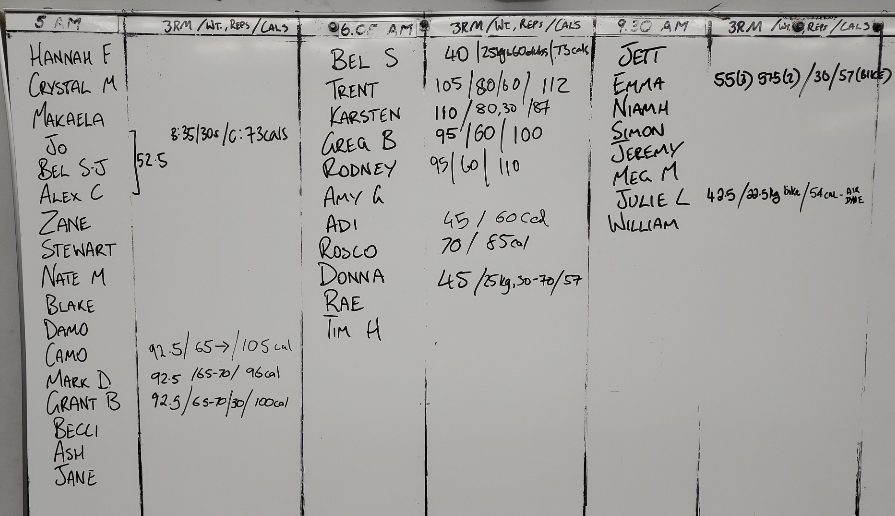 5 AM 3RM/WT., REPS/CALS
HANNAH F
CRYSTAL M
MAKAELA
JO B:35/30s/C:73cals
BEL S-J 52.5
ALEX C
ZANE
STEWART
NATE M
BLAKE
DAMO
CAMO 92.5/65→/105 cal
MARK D. 92.5/65-70/96cal
GRANT B 92.5/65-70/30/100cal
BECCI
ASH
JANE
AM 3RM/WT., REPS/CALS
BEL S 40/25kg
TRENT 105/80/60/112
KARSTEN 110/80,30/87
GREG B 95/60/100
RODNEY 95/60/110
AMY G
ADI 45/60cal
ROSCO 70/85cal
DONNA 45/25kg,30-70/57
RAE
TIM H
9.30 AM 3RM/WT., REPS/CALS
JETT
EMMA 55(3) 575(2)/30/57(BIKE)
NIAMH
SIMON
JEREMY
MEG M
JULIE L 42.5/22.5kg bike/54cal-AIR
WILLIAM